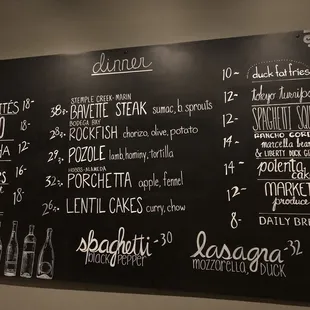 dinner
ITÉS 18-
18-
12-
16-
18-
STEMPLE CREEK-MARIN
38- BAVETTE STEAK sumac, b. sprouts
BODEGA BAY
28- ROCKFISH chorizo, olive, potato
29- POZOLE lamb, hominy, tortilla
32- PORCHETTA apple, fennel
26- LENTIL CAKES curry, chow
spaghetti -30
black PEPPER
lasagna -32
mozzarella, DUCK
10- duck fat fries
12- tokyo turnips
12- SPAGHETTI SQU
14- RANCHO GORD
marcella bean
& LIBERTY DUCK
14- polenta
cake
12- MARKET
produce
8- DAILY BRE